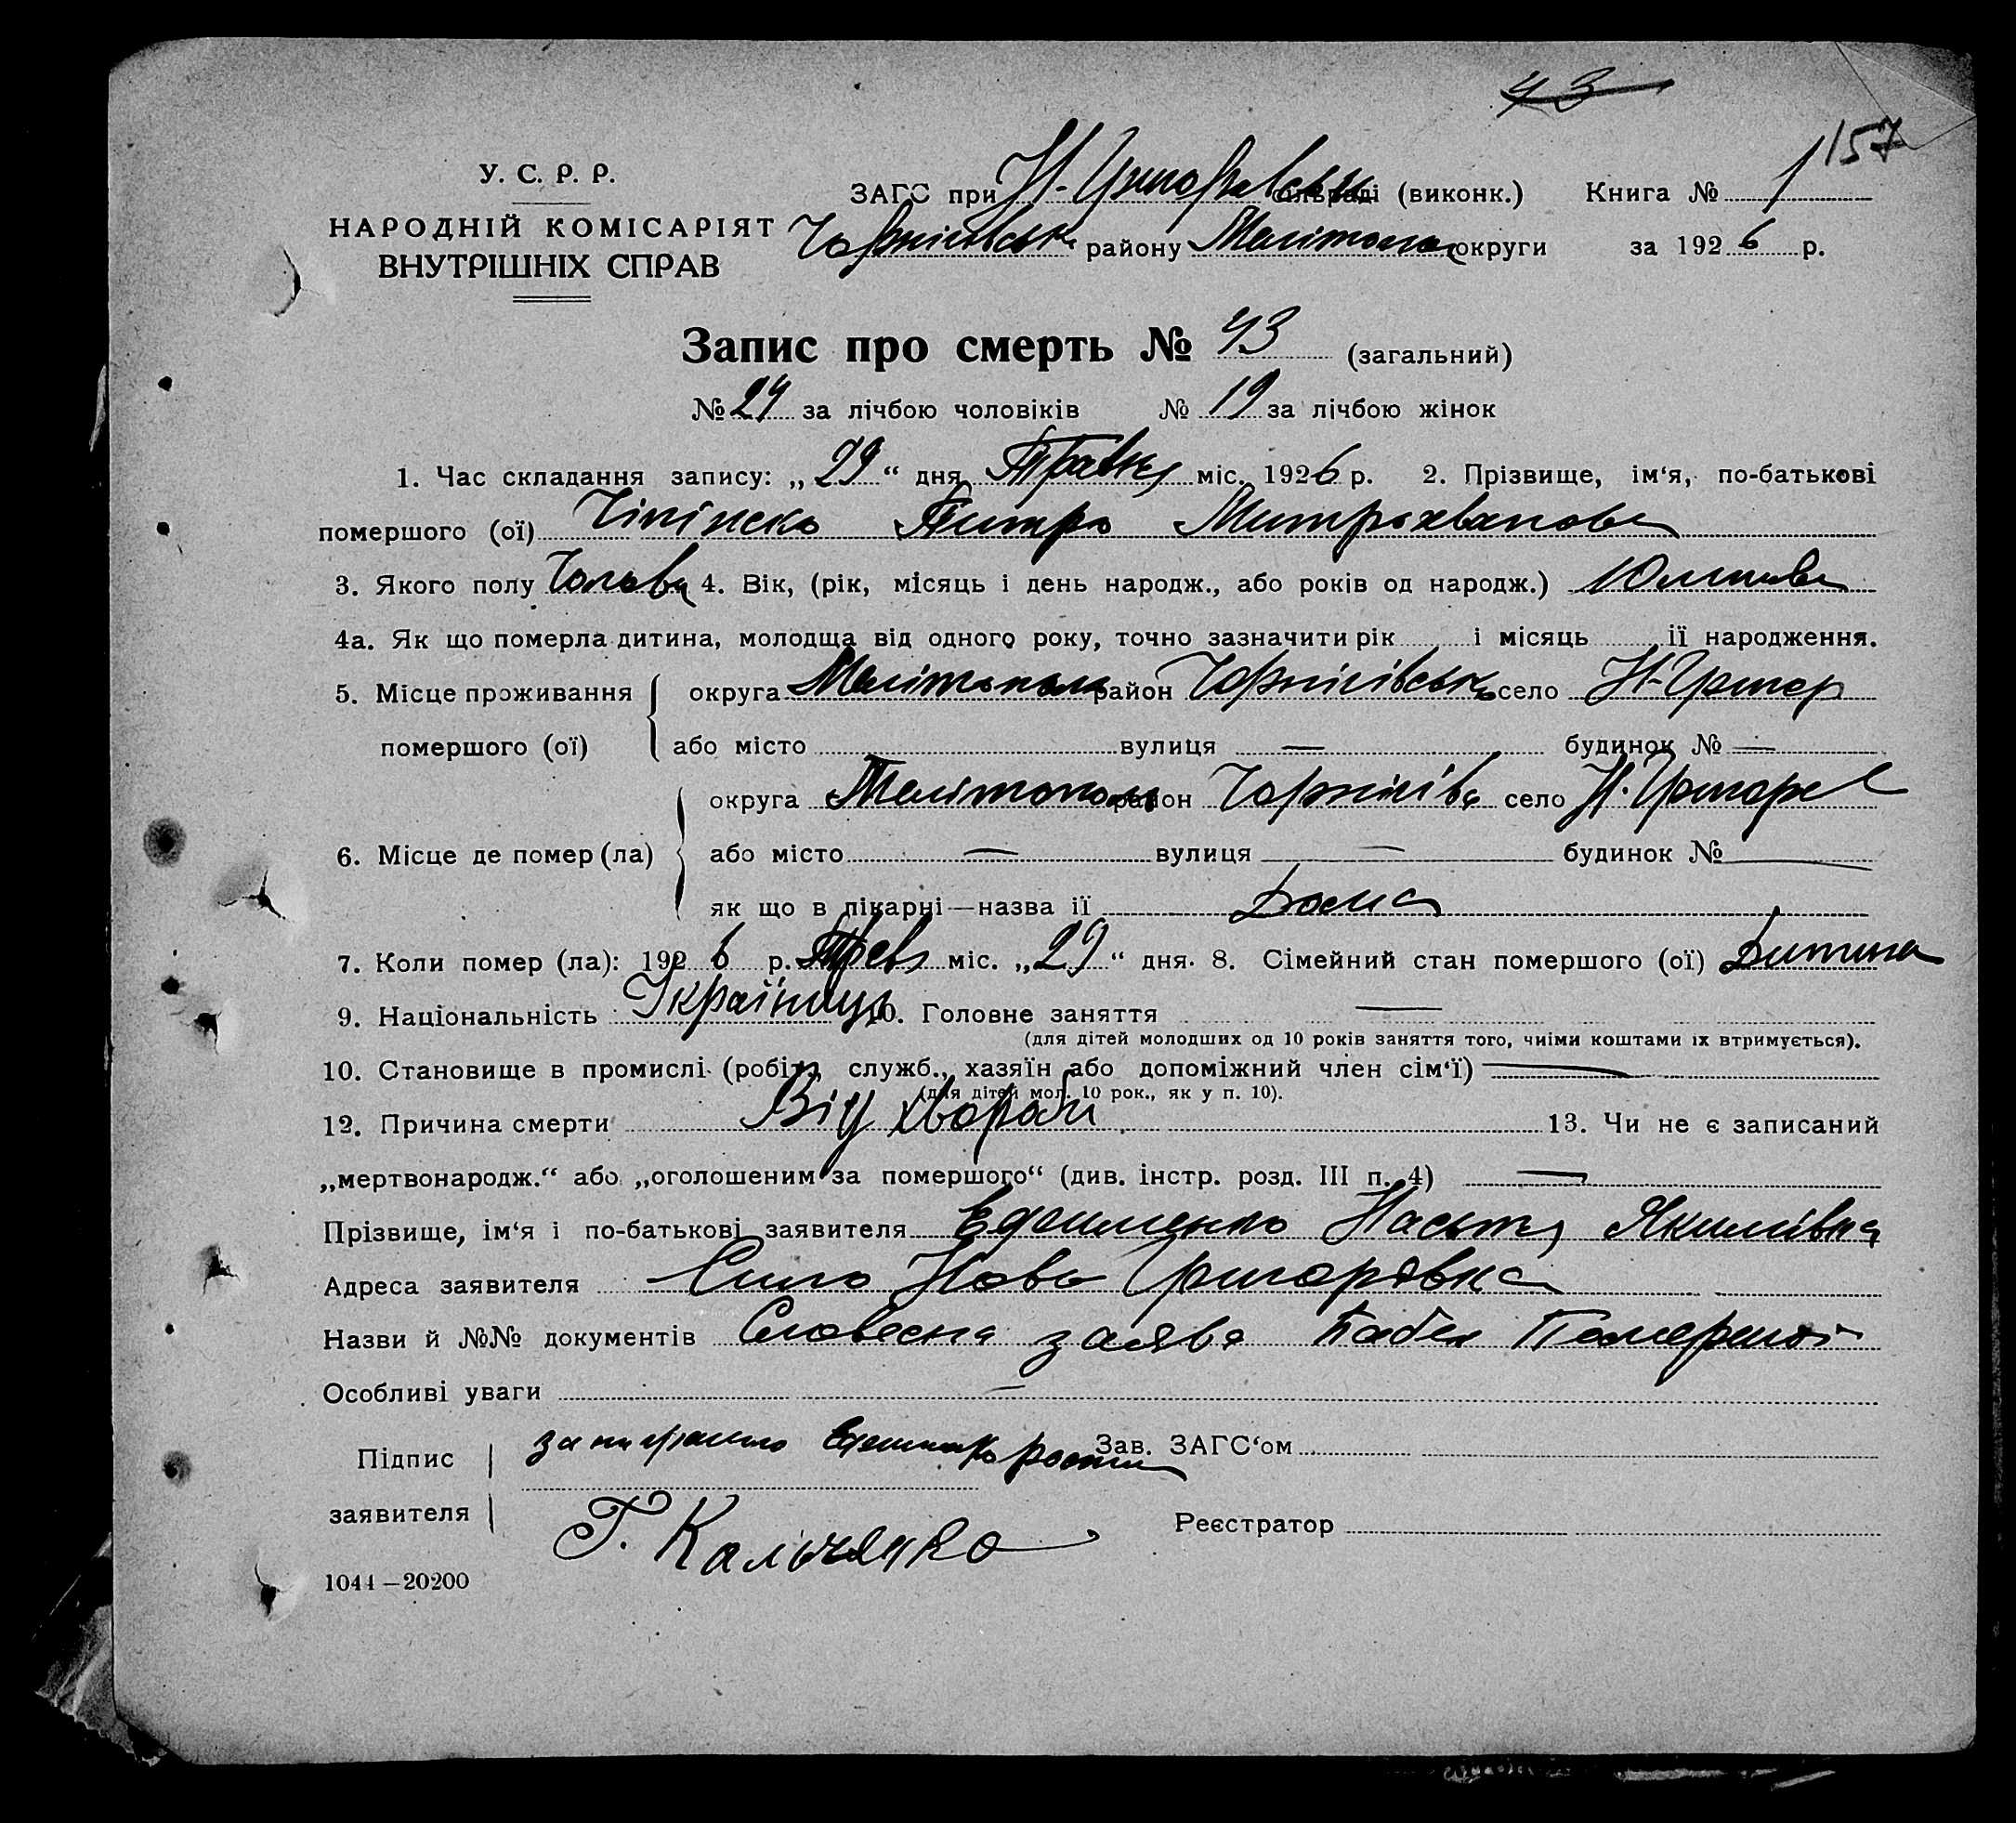 43
157
У. С. Р. Р.
НАРОДНІЙ КОМІСАРІЯТ
ВНУТРІШНІХ СПРАВ
ЗАГС при Н-Григоравськ сільраді (виконк.) Книга № 1
району Мелітополь округи за 1926 р.
Запис про смерть № 43 (загальний)
№ 24 за лічбою чоловіків № 19 за лічбою жінок
1. Час складання запису: „29“ дня Травня міс. 1926 р. 2. Прізвище, ім‘я, по-батькові
помершого (ої) Петро
3. Якого полу Чолов 4. Вік, (рік, місяць і день народж., або років од народж.)
4а. Як що померла дитина, молодща від одного року, точно зазначити рік і місяць її народження.
5. Місце проживання округа Мелітополь район село Н-Григор
помершого (ої) або місто вулиця — будинок № —
округа Мелітополь район село Н. Григоре
6. Місце де помер (ла) або місто — вулиця — будинок № —
як що в лікарні—назва її Дома
7. Коли помер (ла): 1926 р. Трав міс. „29“ дня. 8. Сімейний стан помершого (ої) Дитина
9. Національність Українець 10. Головне заняття —
(для дітей молодших од 10 років заняття того, чиїми коштами їх втримується).
10. Становище в промислі (робітн., служб., хазяїн або допоміжний член сім‘ї) —
(для дітей мол. 10 рок., як у п. 10).
12. Причина смерти Від хвороби 13. Чи не є записаний
„мертвонародж.“ або „оголошеним за помершого“ (див. інстр. розд. III п. 4) —
Прізвище, ім‘я і по-батькові заявителя Настя Якимівна
Адреса заявителя Село Ново Григорівка
Назви й №№ документів Словесна заява
Особливі уваги —
Підпис Зав. ЗАГС‘ом
заявителя Г. Кальченко Реєстратор
1044—20200